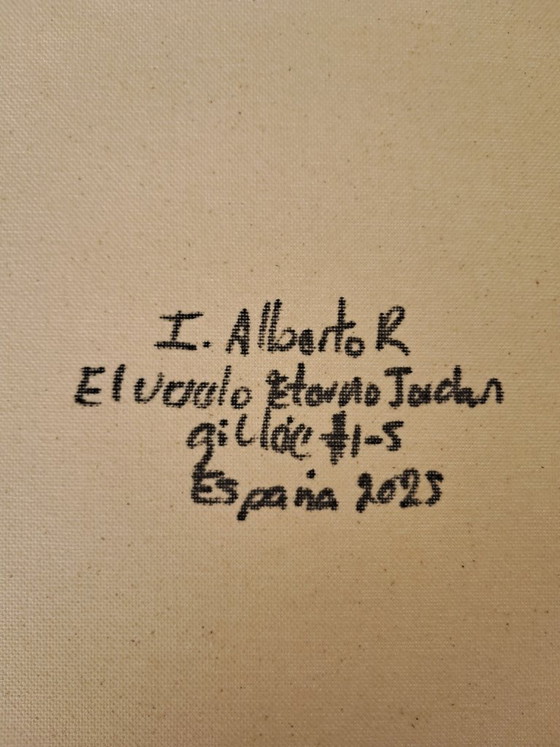 I. Alberto R
El vuelo Eterno Jordan
giclée #1-5
España 2025